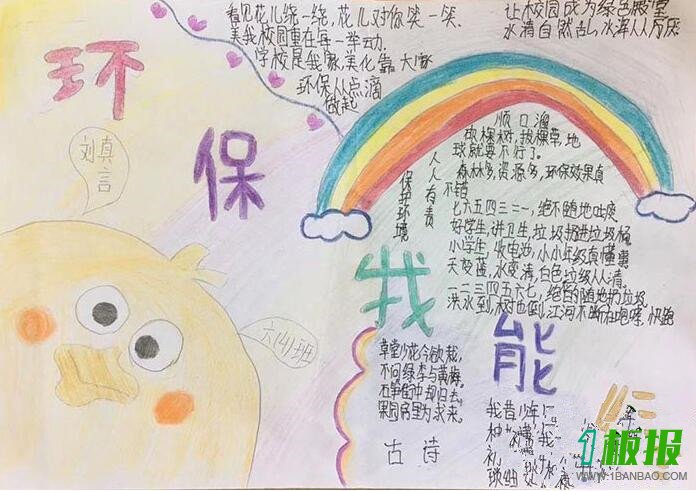 环
保
我
能
看见花儿绕一绕，花儿对你笑一笑
美我校园重在每一举动
学校是我家，美化靠大家
环保从点滴
做起
让校园成为绿色殿堂
刘真言
六(4)班
保护环境
人人有责
顺口溜
砍棵树，拔棵草，地
球就要不行了。
森林多，资源多，环保效果真
不错
七六五四三二一，绝不随地吐痰
好学生，讲卫生，垃圾扔进垃圾桶
小学生，收电池，小小年级真懂事
天变蓝，水变清，白色垃圾从人清。
一二三四五六七，绝不随地扔垃圾
洪水到，树也倒，江河不断在咆哮，快跑
草堂少花今欲栽，
不问绿李与黄梅。
石笋街中却归去，
果园坊里为求来。
古诗
我昔少年
种
1板报
WWW.1BANBAO.COM